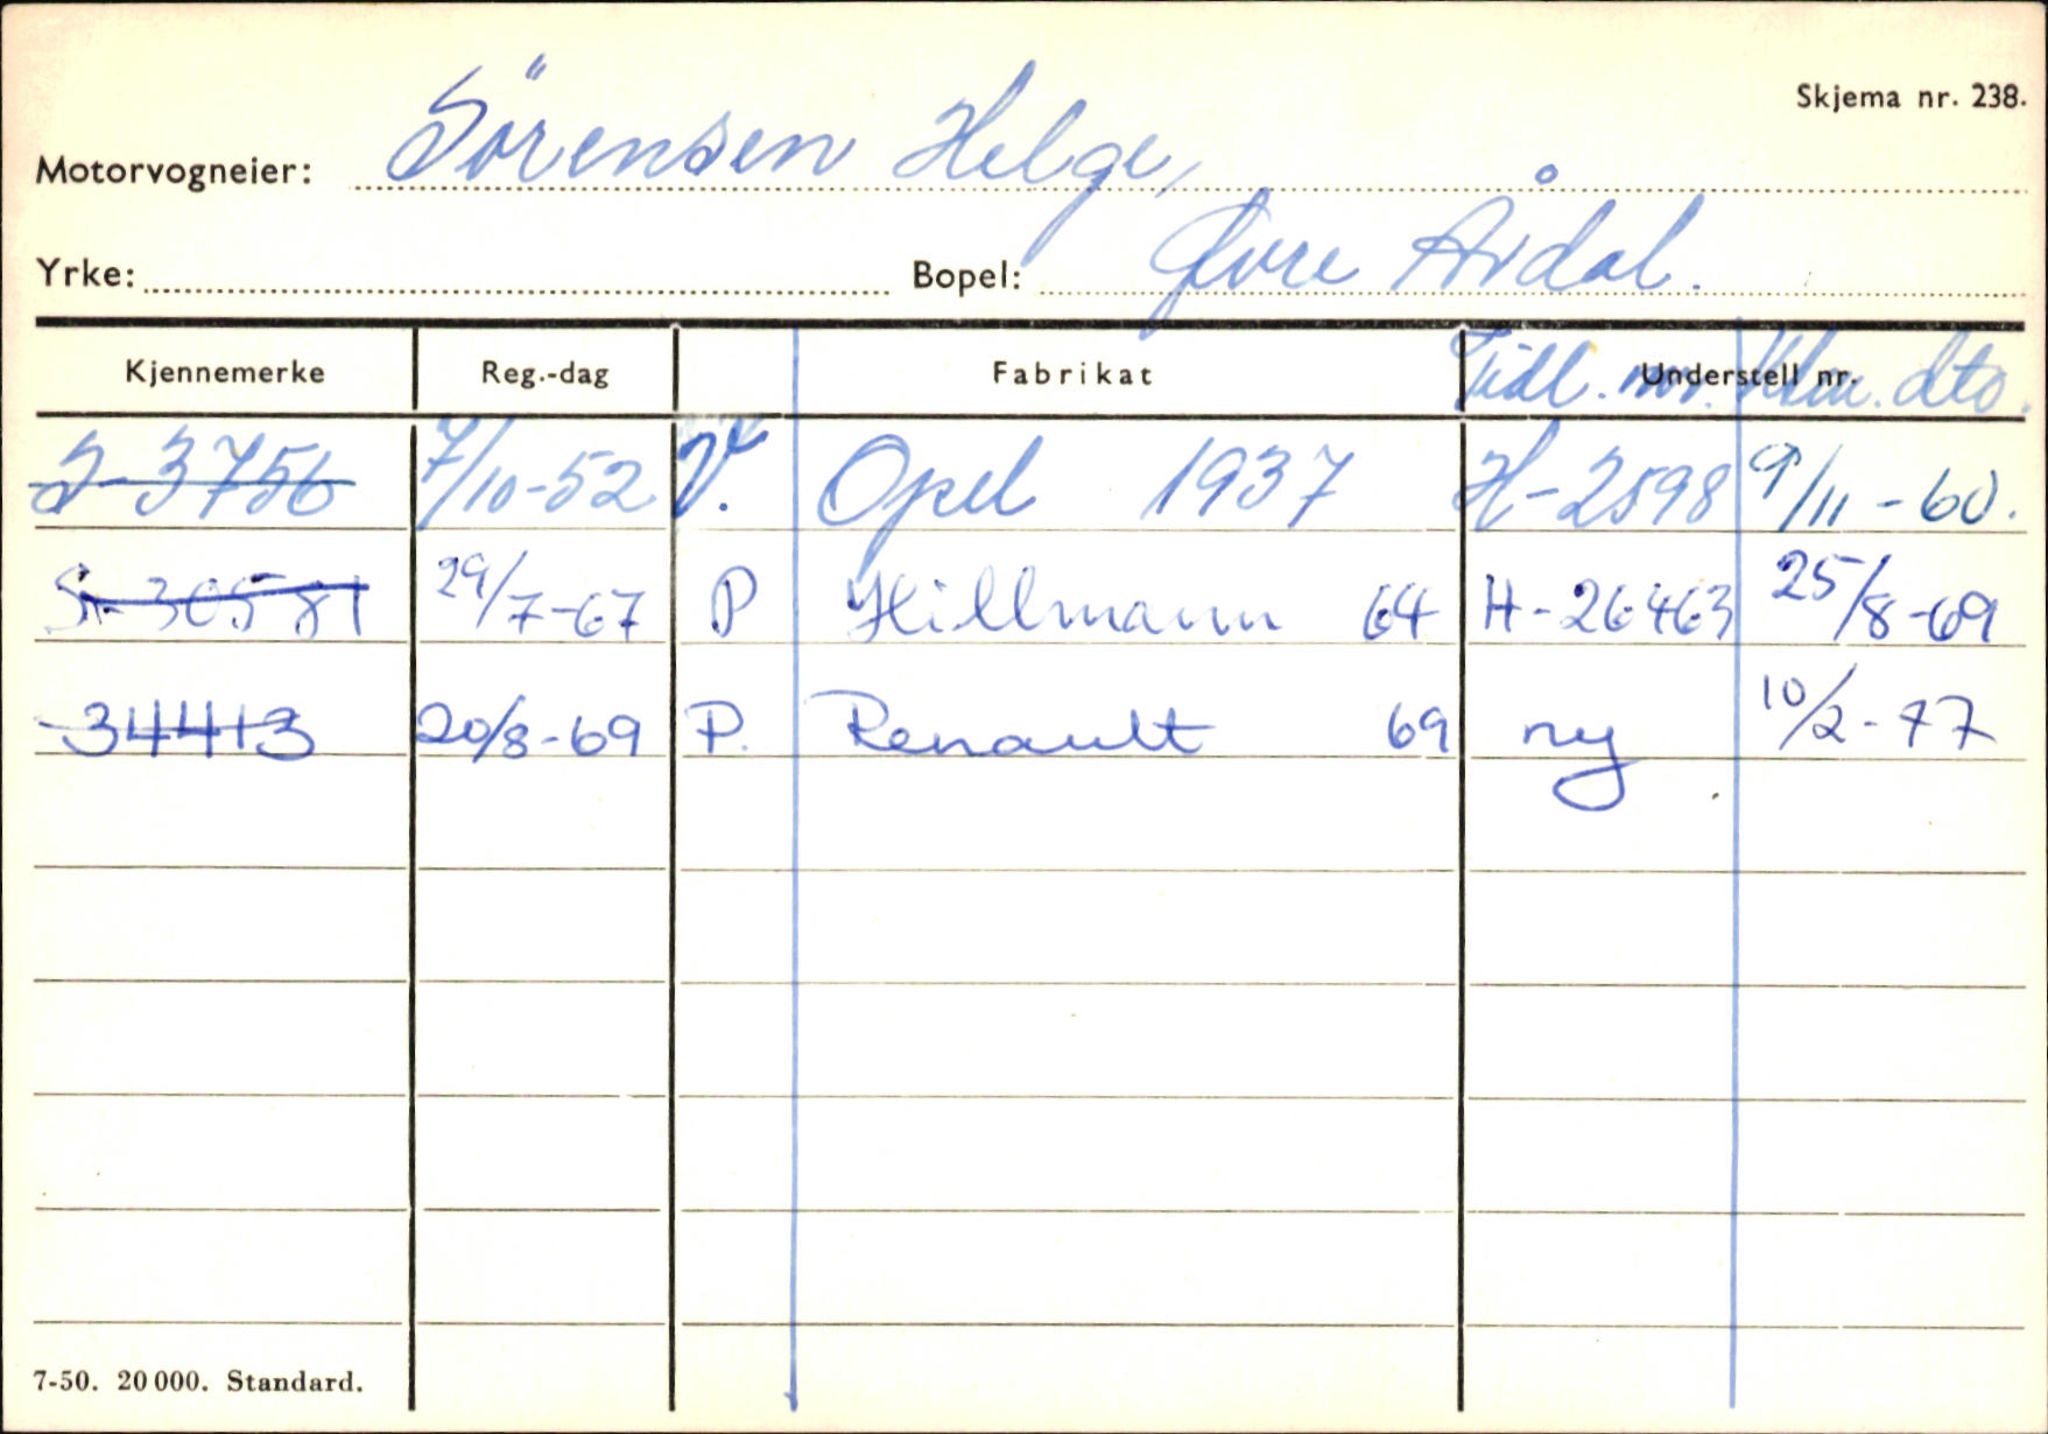 Skjema nr. 238.
Motorvogneier: Sörensen Helge,
Yrke: Bopel: Øvre Årdal.
Kjennemerke Reg.-dag Fabrikat Understell nr. Tidl. nr. Klm. dto.
S-3756 7/10-52 V. Opel 1937 H-2598 9/11-60.
S-30581 29/7-67 P Hillmann 64 H-26463 25/8-69
34413 20/8-69 P. Renault 69 ny 10/2-77
7-50. 20 000. Standard.